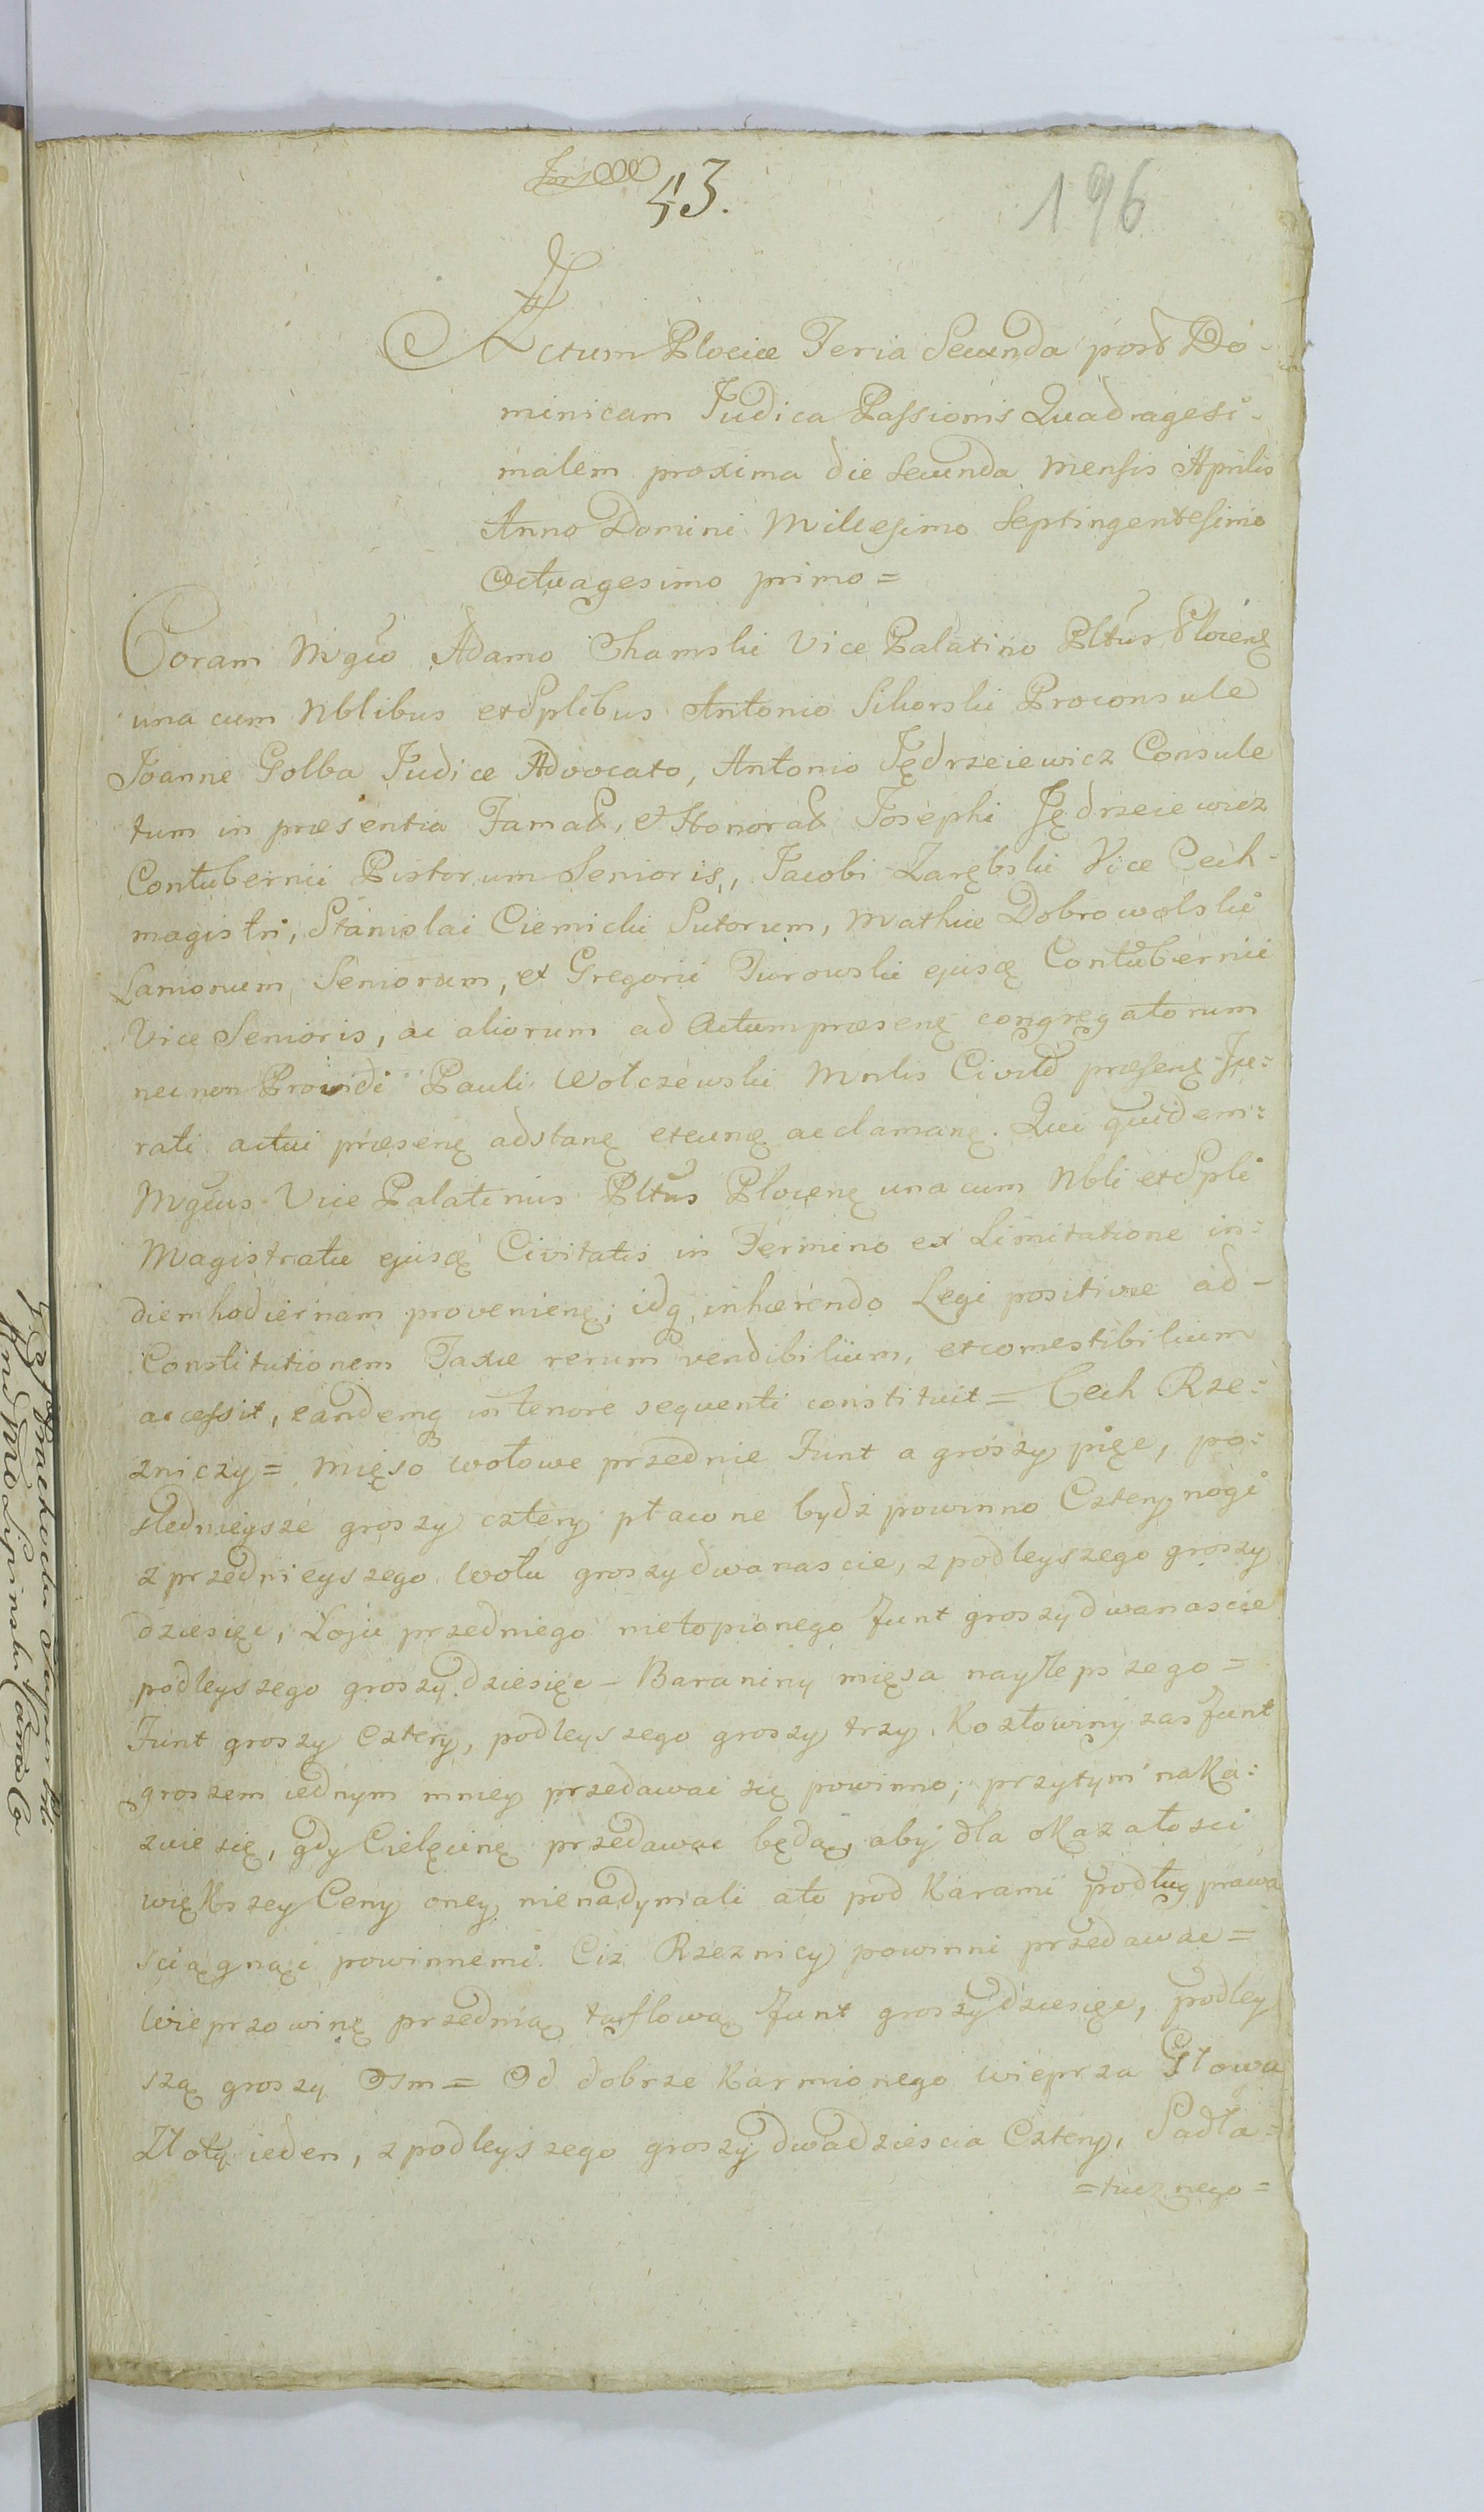 43.
196
Actum Plociæ Feria Secunda post Do-
minicam Judica Passionis Quadragesi-
malem proxima die secunda Mensis Aprilis
Anno Domini Millesimo Septingentesimo
Octuagesimo primo =
Coram Mgco Adamo Chamski Vice Palatino Pltus Plocenę
una cum Nblibus et Splibus Antonio Sikorski Proconsule
Joanne Golba Judice Advocato, Antonio Jędrzeiewicz Consule
tum in præsentia Famat, et Honorat Josephi Jędrzeiewicz
Contubernii Pistorum Senioris, Jacobi Zarębski Vice Cech-
magistri, Stanislai Ciemicki Sutorum, Mathiæ Dobrowolski
Lanionum Seniorum, et Gregorii Turowski ejusdę Contubernii
Vice Senioris, ac aliorum ad Actum præsenę congregatorum
nec non Providi Pauli Wołczewski Mnlis Civitt præsenę Ju=
rati actui præsenę adstanę eteunę acclamanę. Qui quidem=
Mgcus Vice Palatinus Pltus Plocenę una cum Nbli et Spli
Magistratu ejusdę Civitatis in Termino ex Limitatione in=
diem hodiernam provenienę; idq, inhærendo Legi positivæ ad-
Constitutionem Taxæ rerum vendibilium, et comestibilium
accessit, eandemq in tenore sequenti constituit = Cech Rze=
zniczy = Mięso wołowe przednie Funt a groszy pięc, po=
slednieysze groszy cztery płacone bydź powinno Cztery nogi
z przednieyszego Wołu groszy dwanascie, z podleyszego groszy
dziesięc, Łoju przedniego nietopionego Funt groszy dwanascie
podleyszego groszy dziesięc - Baraniny mięsa naylepszego =
Funt groszy Cztery, podleyszego groszy trzy, Kozłowiny zas Funt
groszem iednym mniey przedawac się powinno; przytym naka=
zuie się, gdy Cielęcinę przedawac będą, aby dla okazałosci
większey Ceny oney nienadymali ato pod Karami podług prawa
sciągnąc powinnemi. Ciz Rzeznicy powinni przedawac =
Wieprzowinę przednią taflową Funt groszy dziesięc, podley
szą groszy Osm = Od dobrze karmionego wieprza Głowa
Złoty ieden, z podleyszego groszy dwadziescia Cztery, Sadła=
=tucznego=